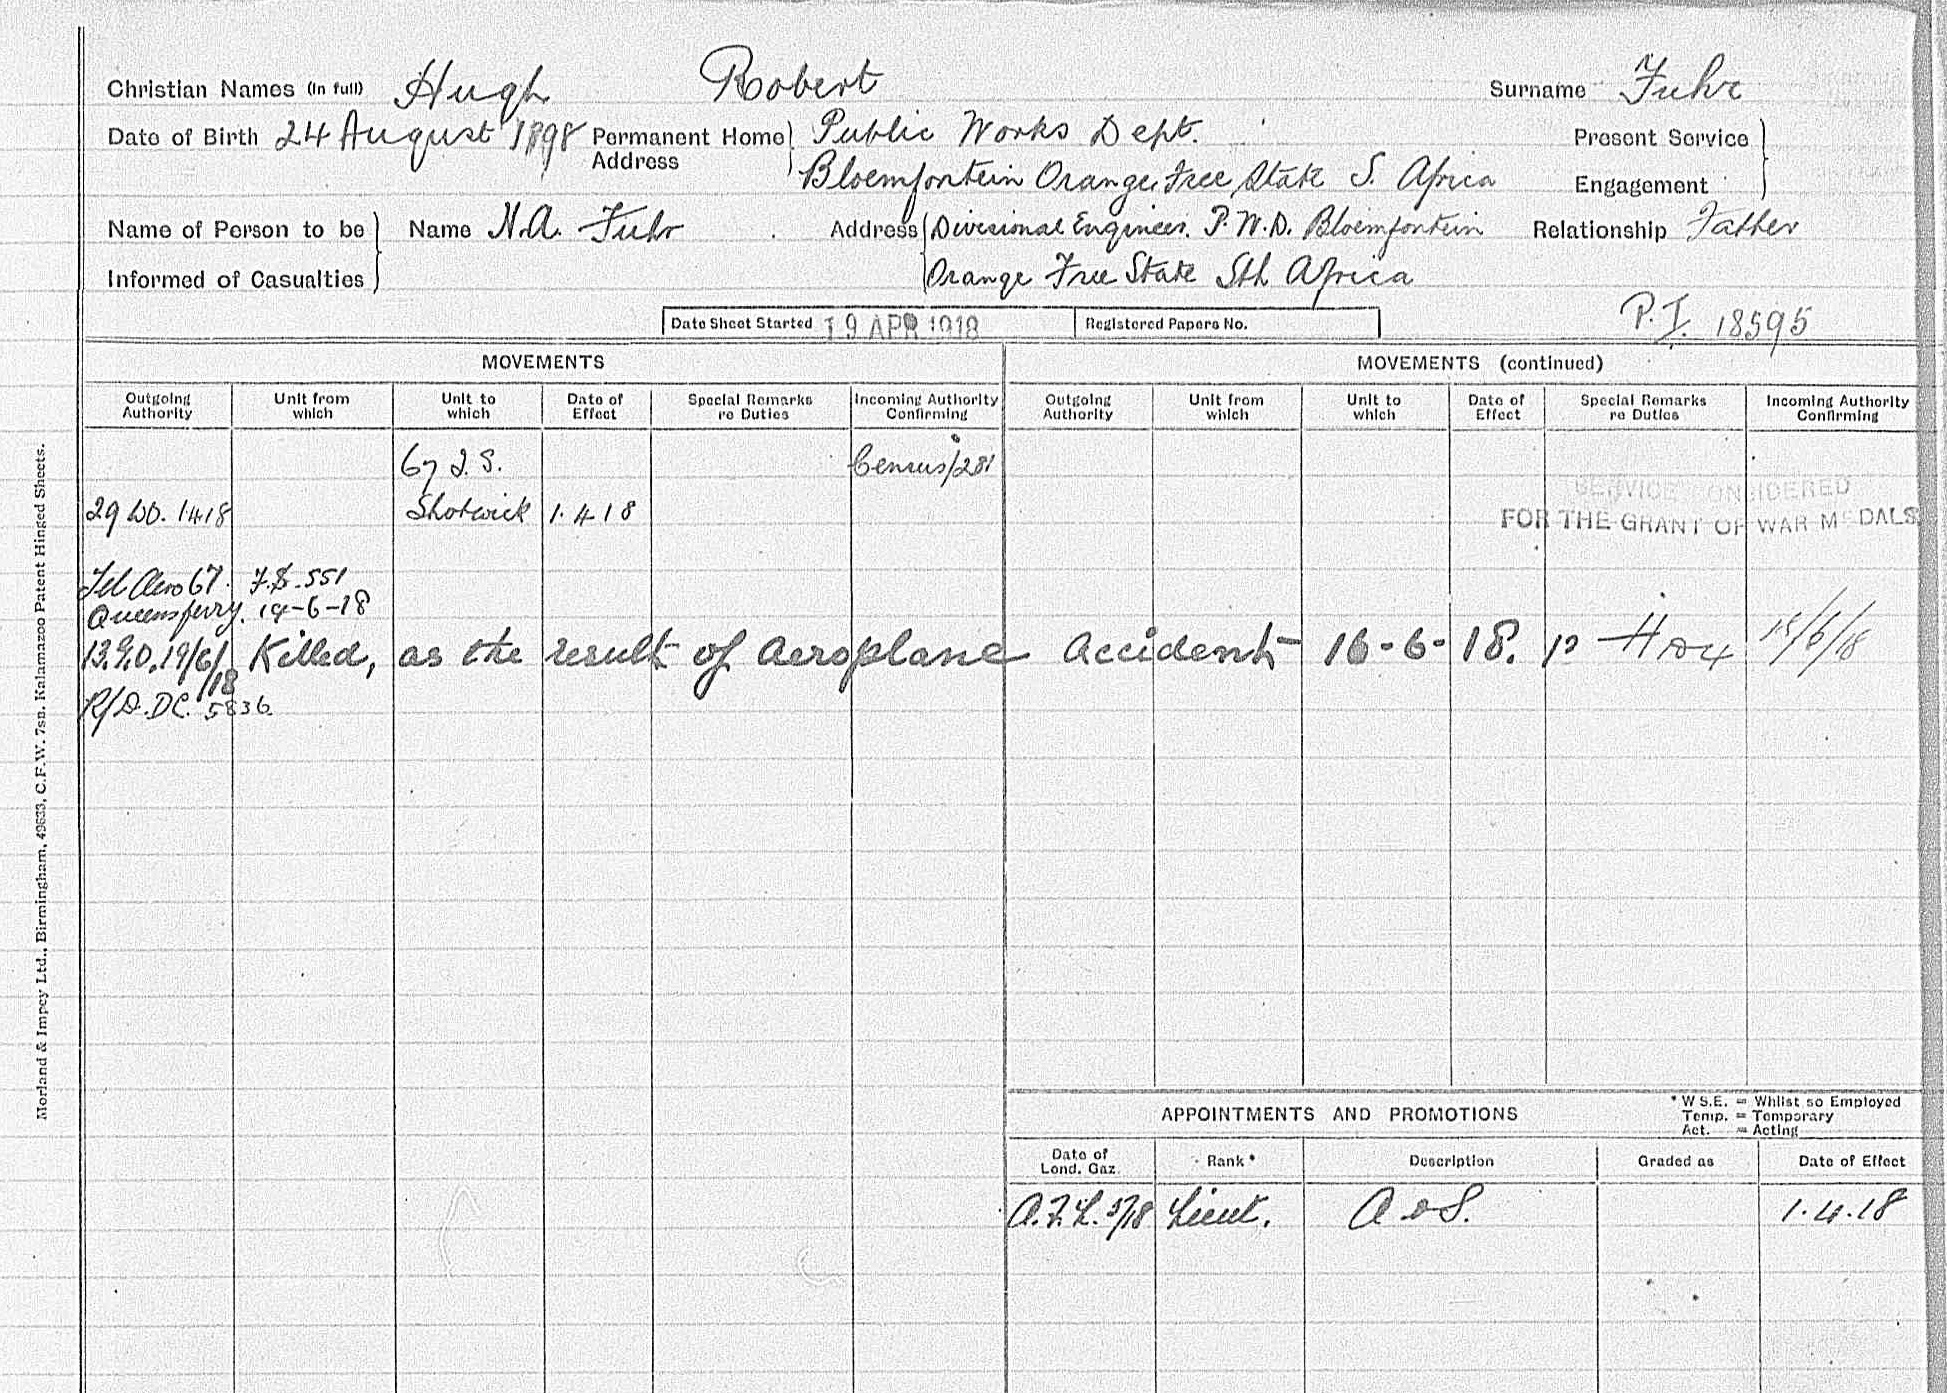 Christian Names (In full) Hugh Robert Surname Fuhr
Date of Birth 24 August 1898 Permanent Home Address Public Works Dept.
Bloemfontein Orange Free State S. Africa
Present Service
Engagement
Name of Person to be Informed of Casualties
Name N.A. Fuhr
Address Divisional Engineer. P.W.D. Bloemfontein
Orange Free State Sth Africa
Relationship Father
Date Sheet Started 19 APR 1918 Registered Papers No.
P.I. 18595
MOVEMENTS
MOVEMENTS (continued)
Outgoing Authority Unit from which Unit to which Date of Effect Special Remarks re Duties Incoming Authority Confirming
Outgoing Authority Unit from which Unit to which Date of Effect Special Remarks re Duties Incoming Authority Confirming
67 T.S. Census/281
29 Wo. 1418 Shotwick 1.4.18
SERVICE CONSIDERED
FOR THE GRANT OF WAR MEDALS
Tel Aero 67. F.S. 551
Queensferry. 14-6-18
19/6/18 Killed, as the result of aeroplane accident 16-6-18.
R/D. DC. 5836
Morland & Impey Ltd., Birmingham, 49633, C.F.W. 7sn. Kalamazoo Patent Hinged Sheets.
APPOINTMENTS AND PROMOTIONS
* W S.E. = Whilst so Employed
Temp. = Temporary
Act. = Acting
Date of Lond. Gaz. Rank * Description Graded as Date of Effect
A.F.L. 5/18 Lieut. A & S. 1.4.18